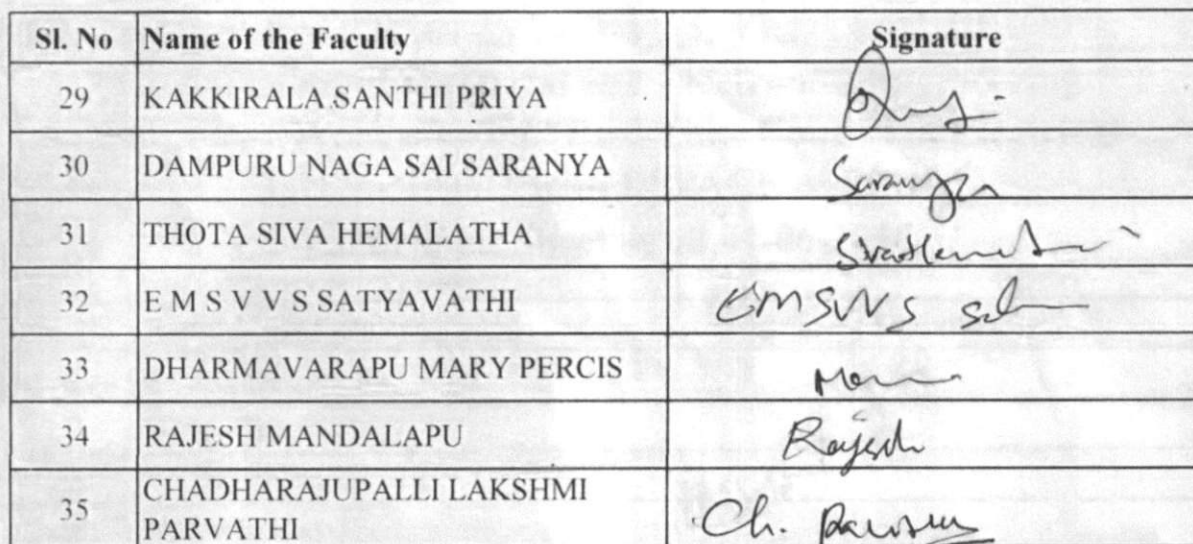 Sl. No Name of the Faculty Signature
29 KAKKIRALA SANTHI PRIYA
30 DAMPURU NAGA SAI SARANYA Saranya
31 THOTA SIVA HEMALATHA
32 E M S V V S SATYAVATHI EMSVVS
33 DHARMAVARAPU MARY PERCIS
34 RAJESH MANDALAPU Rajesh
35 CHADHARAJUPALLI LAKSHMI
PARVATHI Ch.